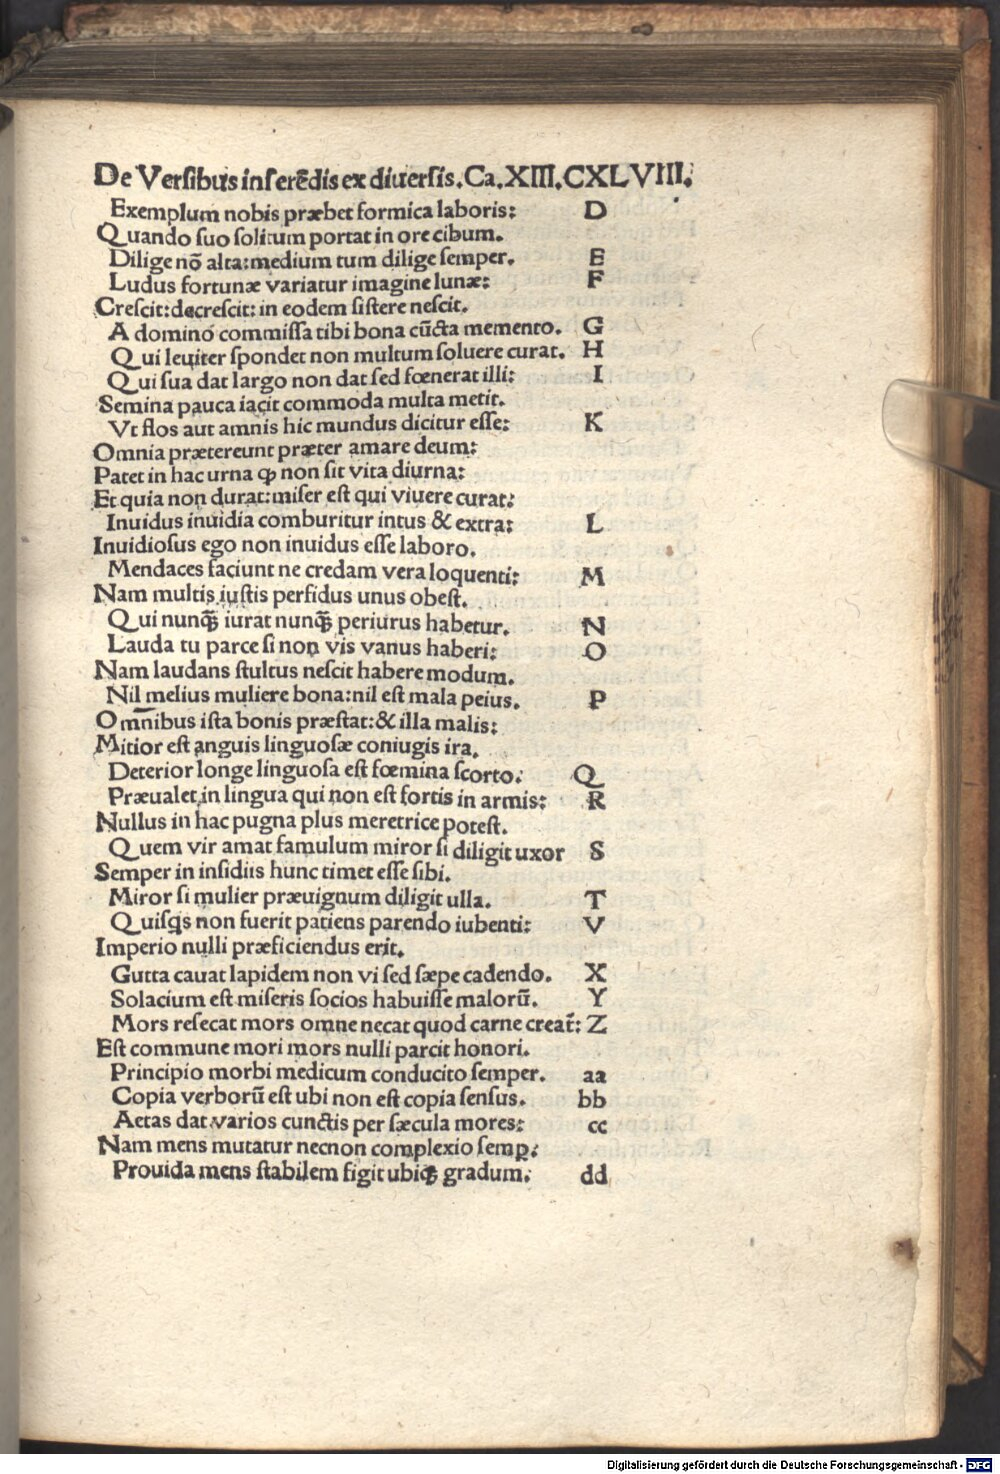 De Versibus inserēdis ex diuersis. Ca. XIII. CXLVIII.
Exemplum nobis præbet formica laboris: D
Quando suo solitum portat in ore cibum.
Dilige nō alta: medium tum dilige semper. E
Ludus fortunæ variatur imagine lunæ: F
Crescit: decrescit: in eodem sistere nescit.
A domino commissa tibi bona cūcta memento. G
Qui leuiter spondet non multum soluere curat. H
Qui sua dat largo non dat sed fœnerat illi: I
Semina pauca iacit commoda multa metit.
Vt flos aut amnis hic mundus dicitur esse: K
Omnia prætereunt præter amare deum:
Patet in hac urna ꝙ non sit vita diurna:
Et quia non durat: miser est qui viuere curat:
Inuidus inuidia comburitur intus & extra: L
Inuidiosus ego non inuidus esse laboro.
Mendaces faciunt ne credam vera loquenti: M
Nam multis iustis perfidus unus obest.
Qui nunꝗ̄ iurat nunꝗ̄ periurus habetur. N
Lauda tu parce si non vis vanus haberi: O
Nam laudans stultus nescit habere modum.
Nil melius muliere bona: nil est mala peius. P
Omnibus ista bonis præstat: & illa malis:
Mitior est anguis linguosæ coniugis ira.
Deterior longe linguosa est fœmina scorto: Q
Præualet in lingua qui non est fortis in armis: R
Nullus in hac pugna plus meretrice potest.
Quem vir amat famulum miror si diligit uxor S
Semper in insidiis hunc timet esse sibi.
Miror si mulier præuignum diligit ulla. T
Quisꝗs non fuerit patiens parendo iubenti: V
Imperio nulli præficiendus erit.
Gutta cauat lapidem non vi sed sæpe cadendo. X
Solacium est miseris socios habuisse malorū. Y
Mors resecat mors omne necat quod carne creat̄: Z
Est commune mori mors nulli parcit honori.
Principio morbi medicum conducito semper. aa
Copia verborū est ubi non est copia sensus. bb
Aetas dat varios cunctis per sæcula mores: cc
Nam mens mutatur necnon complexio semꝑ:
Prouida mens stabilem figit ubiqꝫ gradum: dd
Digitalisierung gefördert durch die Deutsche Forschungsgemeinschaft - DFG